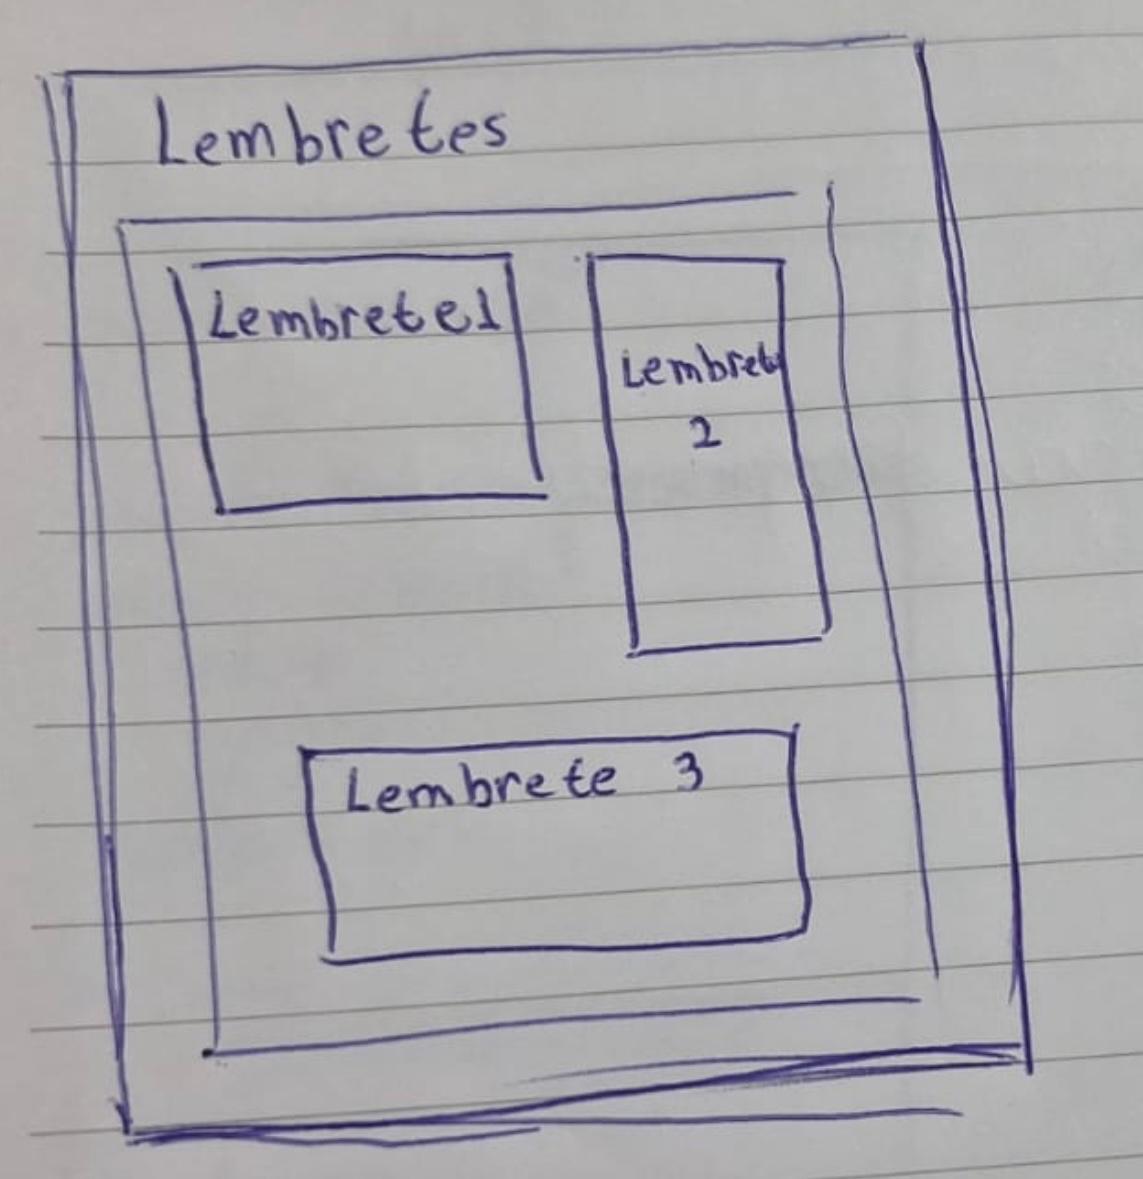 Lembretes
Lembrete1
Lembrete
2
Lembrete 3